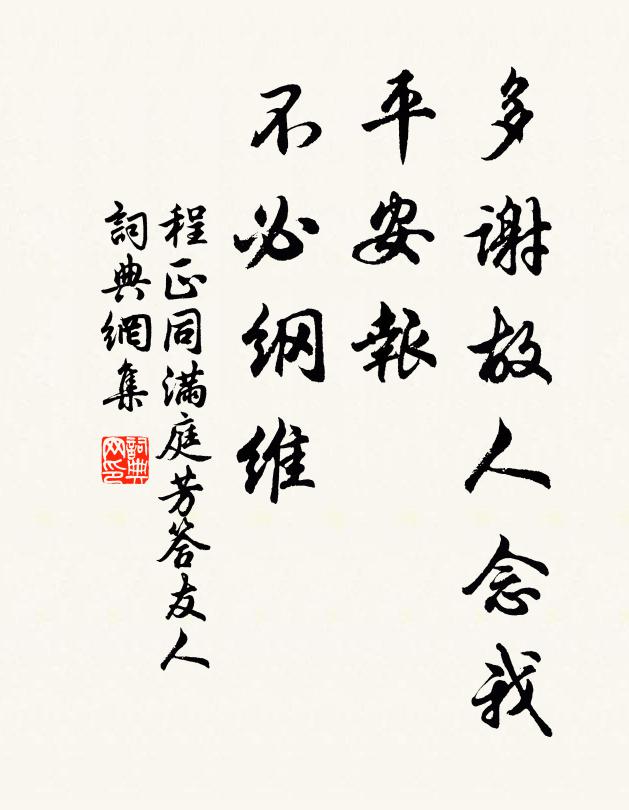 多谢故人念我
平安報
不必纲维
程正同满庭芳答友人
詞典網集
詞典
网印